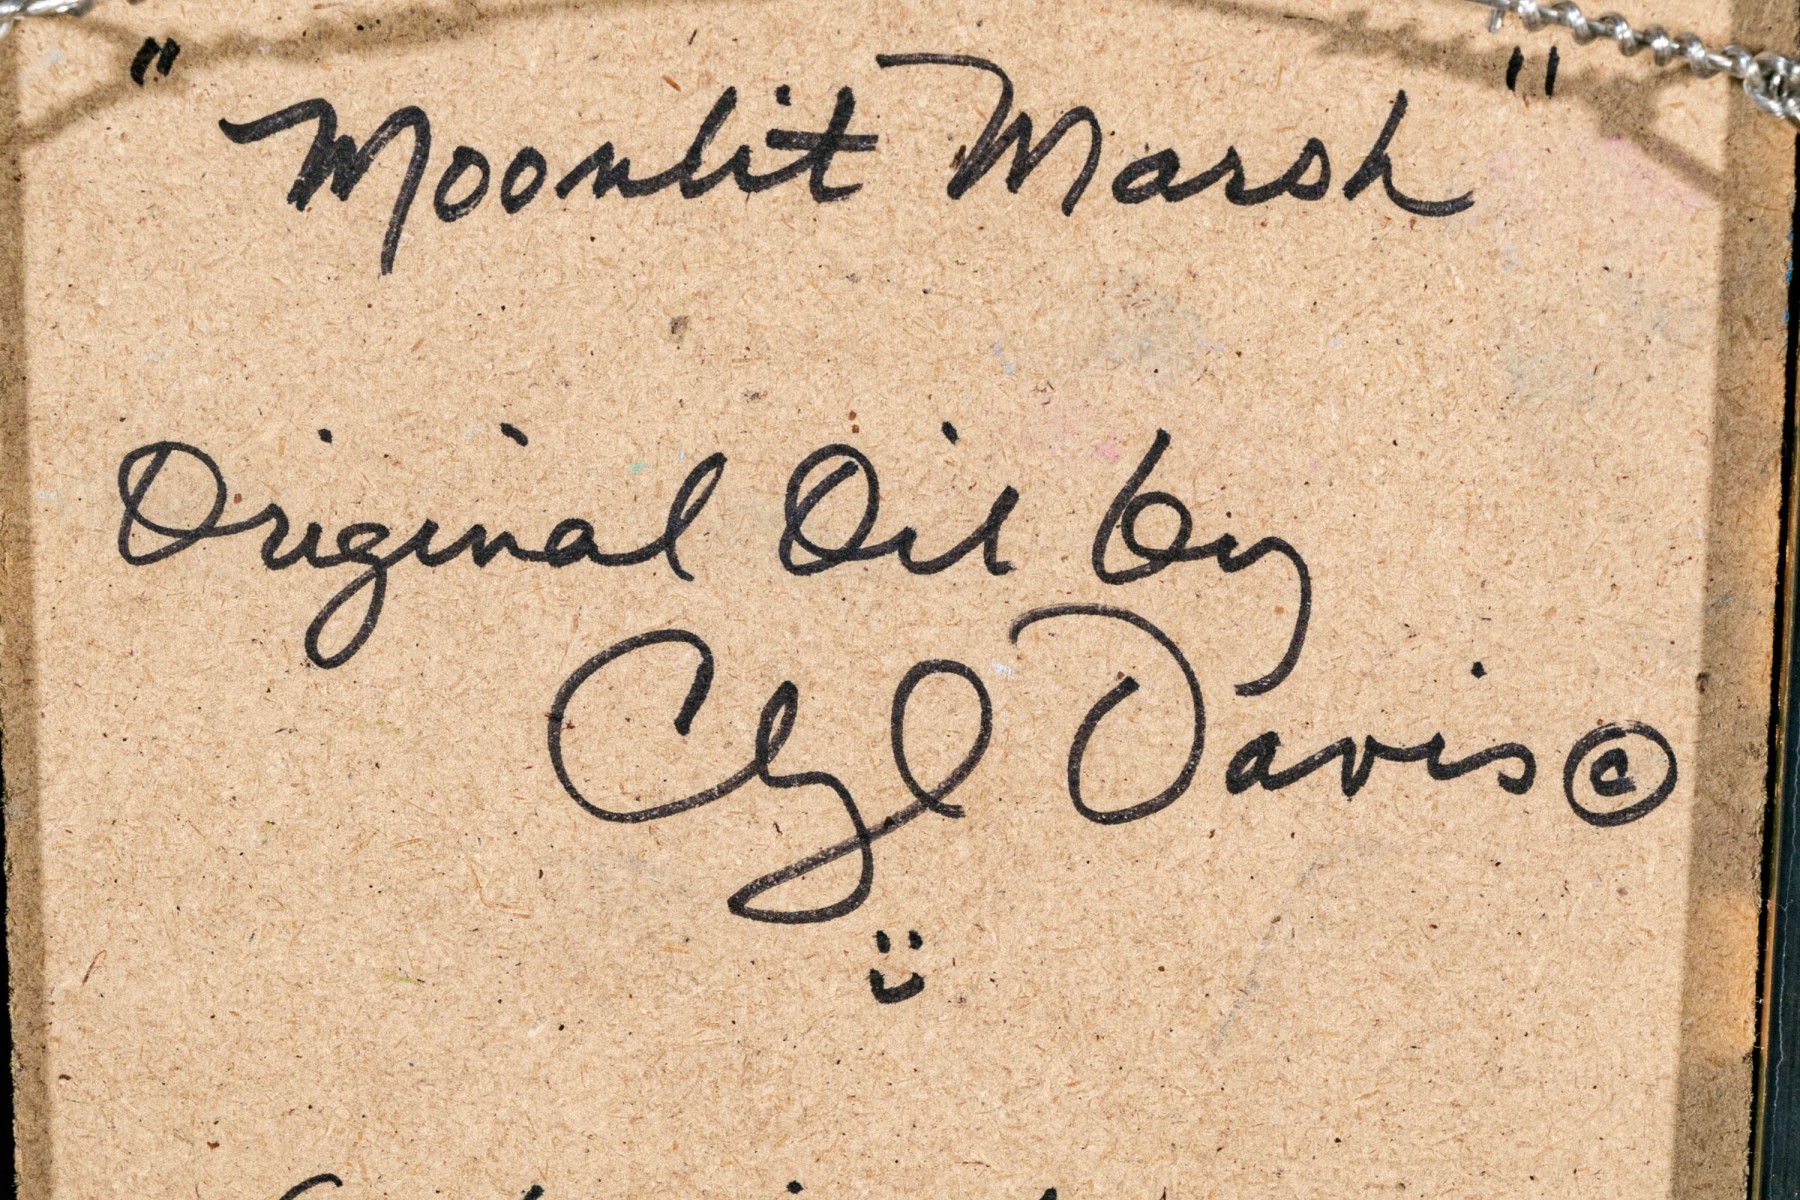 "Moonlit Marsh"
Original Oil by
Davis ©